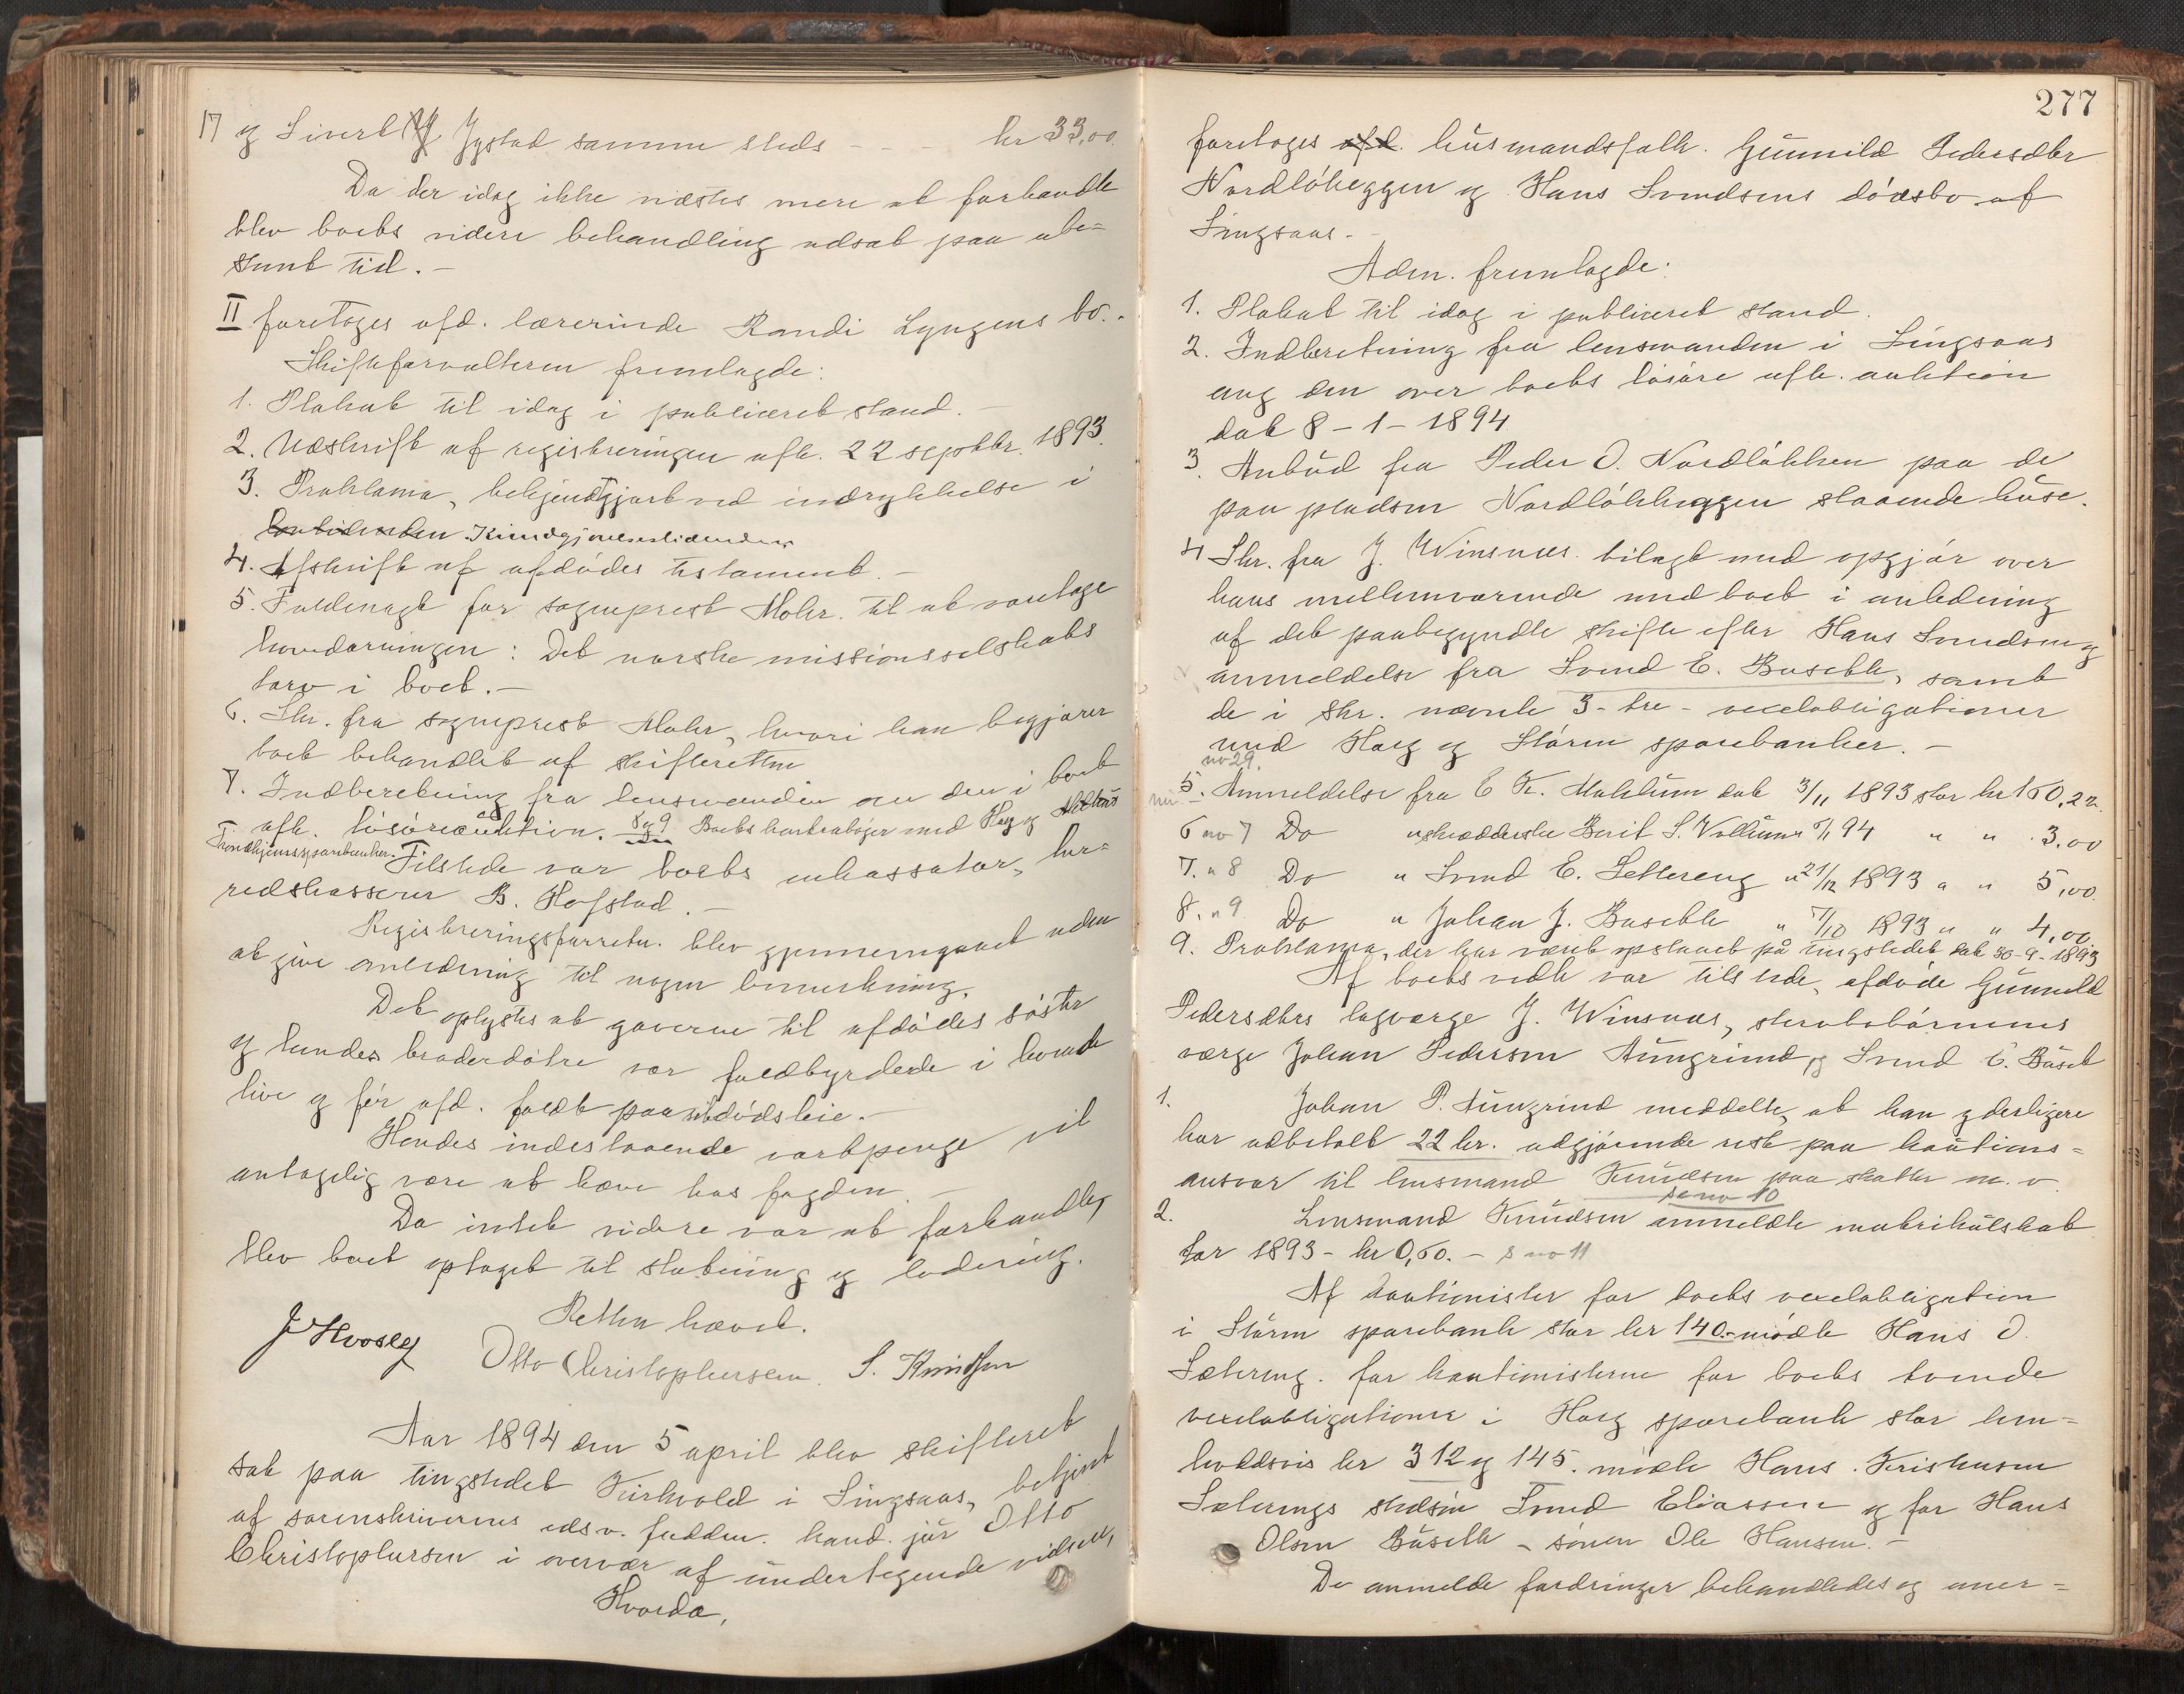 17 og Sivert Igstad samme steds - - - kr 33,00.
Da der idag ikke viastes mere at forhandle
blev boets videre behandling udsat paa ube=
stemt tid. -
II foretoges afd. lærerinde Randi Lyngens bo. -
Skifteforvalteren fremlagde:
1. Plakat til idag i publiceret stand. -
2. Udskrift af registreringen afh. 22 septbr. 1893.
3. Proklama, bekjendtgjort ved indrykkelse i
Kundgjørelsestidenden
4. Afskrift af afdødes testament. -
5. Fuldmagt for sogneprest Mohr til at varetage
hovedarvingen: Det norske missionsselskabs
tarv i boet. -
6. Skr. fra sogneprest Mohr, hvori han begjærer
boet behandlet af skifteretten
7. Indberetning fra lensmanden om den i boet
afh. løsøreauktion. 8 og 9 Boets kontrabøger med Høeg og
Trondhjems sparebanker. Tilstede var boets inkassator, her=
redskasserer B. Hofstad. -
Registreringsforretn. blev gjennemgaaet uden
at give anledning til nogen bemerkning.
Det oplystes at gaverne til afdødes søster
og hendes broderdøtre var fuldbyrdede i levende
live og før afd. faldt paa sit dødsleie. -
Hendes indestaaende vartpenge vil
antagelig være at hæve hos fogden. -
Da intet videre var at forhandle,
blev boet optaget til slutning og lodering.
Retten hævet.
J Hvoslef Otto Christophersen. S. Knudsen
Aar 1894 den 5 april blev skifteret
sat paa tingstedet Kirkvold i Singsaas, betjent
af sorenskriverens edsv. fuldm. kand. jur Otto
Christophersen i overvær af undertegnede vidner,
Hvorda,
277
foretoges afd. husmandsfolk. Gunnild Pedersdtr
Nordløkeggen og Hans Svendsens dødsbo af
Singsaas. -
Adm. fremlagde:
1. Plakat til idag i publiceret stand.
2. Indberetning fra lensmanden i Singsaas
ang den over boets løsøre afh. auktion
dat 8 - 1 - 1894
3. Anbud fra Peder O. Nordløkken paa de
paa pladsen Nordløkkeggen staaende huse.
4 Skr. fra J. Winsnes bilagt med opgjør over
hans mellemværende med boet i anledning
af det paabegyndte skifte efter Hans Svendsen og
anmeldelse fra Svend E. Busetli, samt
de i skr. nævnte 3 - tre - vexelobligationer
med Høeg og Støren sparebanker. -
no 29.
5. Anmeldelse fra E Kr. Moklum dat 3/11 1893 stor kr 150,22
6 no 7 Do " skrædderske Berit S. Vollum " /1 94 " " 3.00
7. " 8 Do " Svend E. Setereng " 21/12 1893 " " 5,00.
8. " 9 Do " Johan J. Busetli " 7/10 1893 " " 4,00
9. Proklama, der har været opslaaet på tingstedet dat 30 - 9 - 1893
Af boets vedk var tilstede, afdøde Gunnild
Pedersdtrs lagværge J. Winsnes, sterbobørnenes
værge Johan Pedersen Aungrind, og Svend E. Buset
1. Johan P. Aungrind meddelte, at han yderligere
har udbetalt 22 kr. udgjørende rest paa kautions=
ansvar til lensmand Knudsen paa skatter m. v.
se no 10
2. Lensmand Knudsen anmeldte matrikulskat
for 1893 - kr 0,60. - s no 11
Af kautionister for boets vexelobligation
i Støren sparebank stor kr 140.- mødte Hans O.
Sætereng. for kautionisterne for boets tvende
vexelobligationer i Høeg sparebank stor hen=
holdsvis kr 312 og 145. mødte Hans. Kristensen
Sæterengs stedsøn Svend Eliassen og for Hans
Olsen Busetli - sønen Ole Hansen. -
De anmeldte fordringer behandledes og aner=